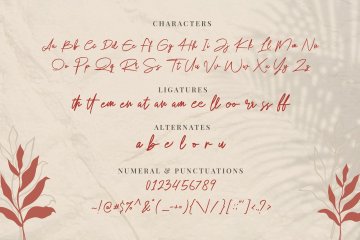 CHARACTERS
Aa Bb Cc Dd Ee Ff Gg Hh Ii Jj Kk Ll Mm Nn
Oo Pp Qq Rr Ss Tt Uu Vv Ww Xx Yy Zz
LIGATURES
th tt em en at an am ee ll oo rr ss ff
ALTERNATES
a b e l o r u
NUMERAL & PUNCTUATIONS
0123456789